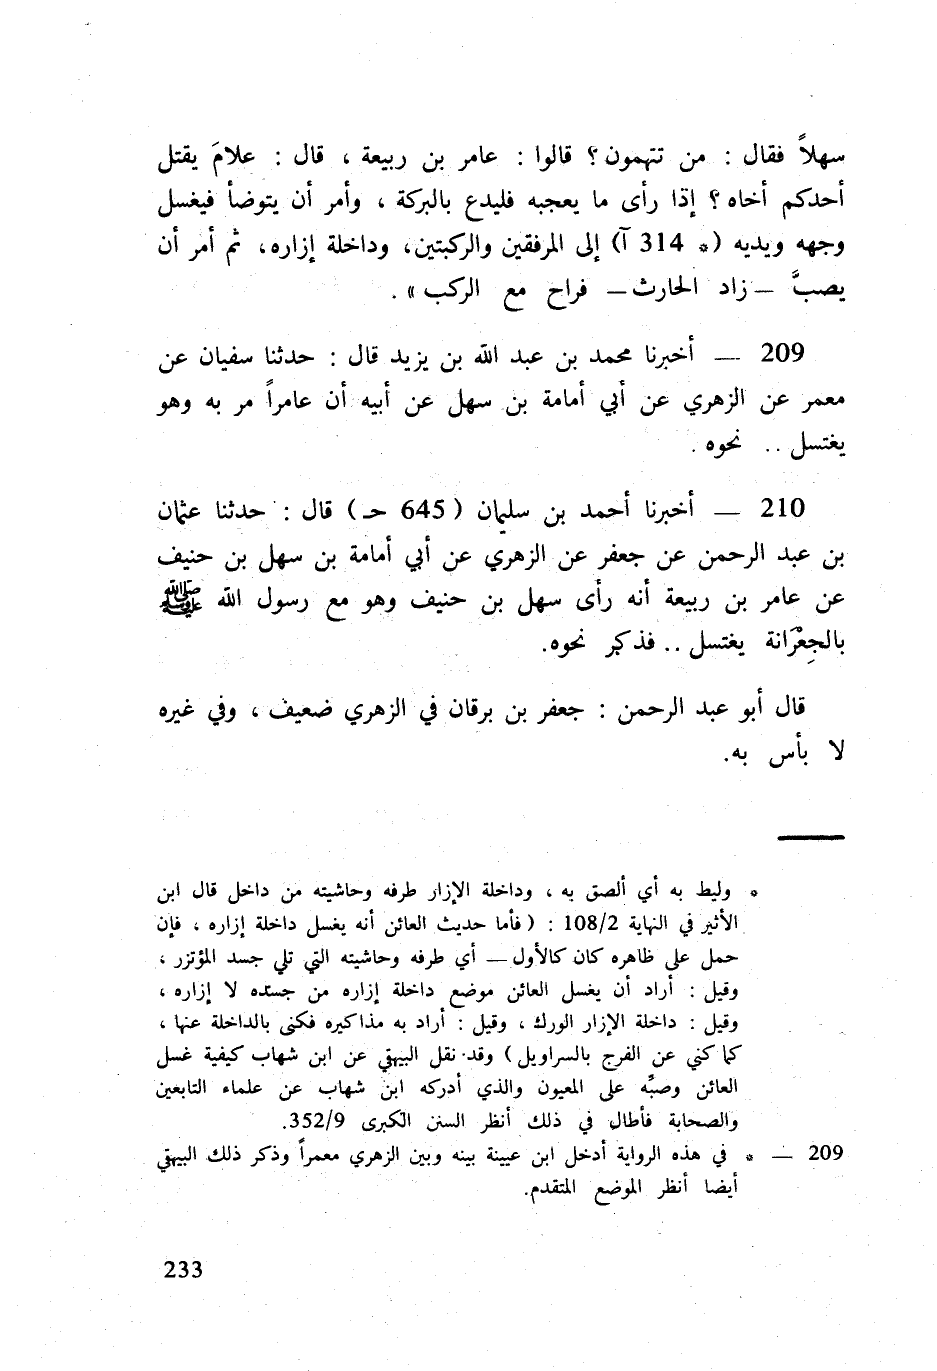 سهلاً فقال : من تتهمون ؟ قالوا : عامر بن ربيعة ، قال : علامَ يقتل
أحدكم أخاه ؟ إذا رأى ما يعجبه فليدع بالبركة ، وأمر أن يتوضأ فيغسل
وجهه ويديه (* 314 آ) إلى المرفقين والركبتين، وداخلة إزاره، ثم أمر أن
يصبَّ — زاد الحارث — فراح مع الركب » .
209 — أخبرنا محمد بن عبد الله بن يزيد قال : حدثنا سفيان عن
معمر عن الزهري عن أبي أمامة بن سهل عن أبيه أن عامراً مر به وهو
يغتسل .. نحوه .
210 — أخبرنا أحمد بن سليمان ( 645 حـ ) قال : حدثنا عثمان
بن عبد الرحمن عن جعفر عن الزهري عن أبي أمامة بن سهل بن حنيف
عن عامر بن ربيعة أنه رأى سهل بن حنيف وهو مع رسول الله ﷺ
بالجِعْرَانة يغتسل .. فذكر نحوه.
قال أبو عبد الرحمن : جعفر بن برقان في الزهري ضعيف ، وفي غيره
لا بأس به.
* وليط به أي ألصق به ، وداخلة الإزار طرفه وحاشيته من داخل قال ابن
الأثير في النهاية 108/2 : ( فأما حديث العائن أنه يغسل داخلة إزاره ، فإن
حمل على ظاهره كان كالأول — أي طرفه وحاشيته التي تلي جسد المؤتزر ،
وقيل : أراد أن يغسل العائن موضع داخلة إزاره من جسده لا إزاره ،
وقيل : داخلة الإزار الورك ، وقيل : أراد به مذاكيره فكنى بالداخلة عنها ،
كما كني عن الفرج بالسراويل ) وقد نقل البيهقي عن ابن شهاب كيفية غسل
العائن وصبّه على المعيون والذي أدركه ابن شهاب عن علماء التابعين
والصحابة فأطال في ذلك أنظر السنن الكبرى 352/9.
209 — * في هذه الرواية أدخل ابن عيينة بينه وبين الزهري معمراً وذكر ذلك البيهقي
أيضا أنظر الموضع المتقدم.
233